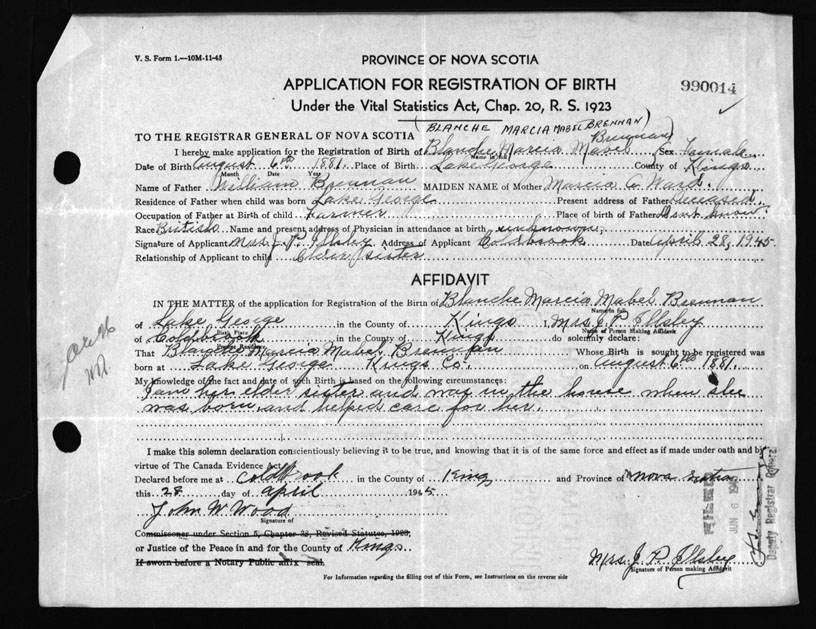 V. S. Form 1.—10M-11-45
PROVINCE OF NOVA SCOTIA
APPLICATION FOR REGISTRATION OF BIRTH
990014
Under the Vital Statistics Act, Chap. 20, R. S. 1923
(BLANCHE MARCIA MABEL BRENNAN)
TO THE REGISTRAR GENERAL OF NOVA SCOTIA
I hereby make application for the Registration of Birth of Blanche Marcia Mabel Brennan Sex Female
Name in full
Date of Birth August 6th 1881. Place of Birth Lake George County of Kings
Month Date Year
Name of Father William Brennan MAIDEN NAME of Mother Marcia C. Ward.
Residence of Father when child was born Lake George Present address of Father Deceased.
Occupation of Father at Birth of child Farmer Place of birth of Father Dont know.
Race British Name and present address of Physician in attendance at birth unknown.
Signature of Applicant Mrs. J. P. Illsley Address of Applicant Coldbrook Date April 28, 1945.
Relationship of Applicant to child Elder sister
AFFIDAVIT
IN THE MATTER of the application for Registration of the Birth of Blanche Marcia Mabel Brennan
Name in full
of Lake George in the County of Kings I, Mrs. J. P. Illsley
Birth Place Name of Person Making Affidavit
of Coldbrook in the County of Kings do solemnly declare:
Present Residence
That Blanche Marcia Mabel Brennan Whose Birth is sought to be registered was
born at Lake George Kings Co. on August 6th 1881.
My knowledge of the fact and date of such Birth is based on the following circumstances:
I am her elder sister and was in the house when she
was born, and helped care for her.
I make this solemn declaration conscientiously believing it to be true, and knowing that it is of the same force and effect as if made under oath and by
virtue of The Canada Evidence Act.
Declared before me at Coldbrook in the County of Kings and Province of Nova Scotia
this 28 day of April 1945
John W. Wood
Signature of
Commissoner under Section 5, Chapter 38, Revised Statutes, 1923,
or Justice of the Peace in and for the County of Kings.
If sworn before a Notary Public affix seal.
Mrs. J. P. Illsley
Signature of Person making Affidavit
For Information regarding the filling out of this Form, see Instructions on the reverse side
JUN 6
Deputy Registrar General